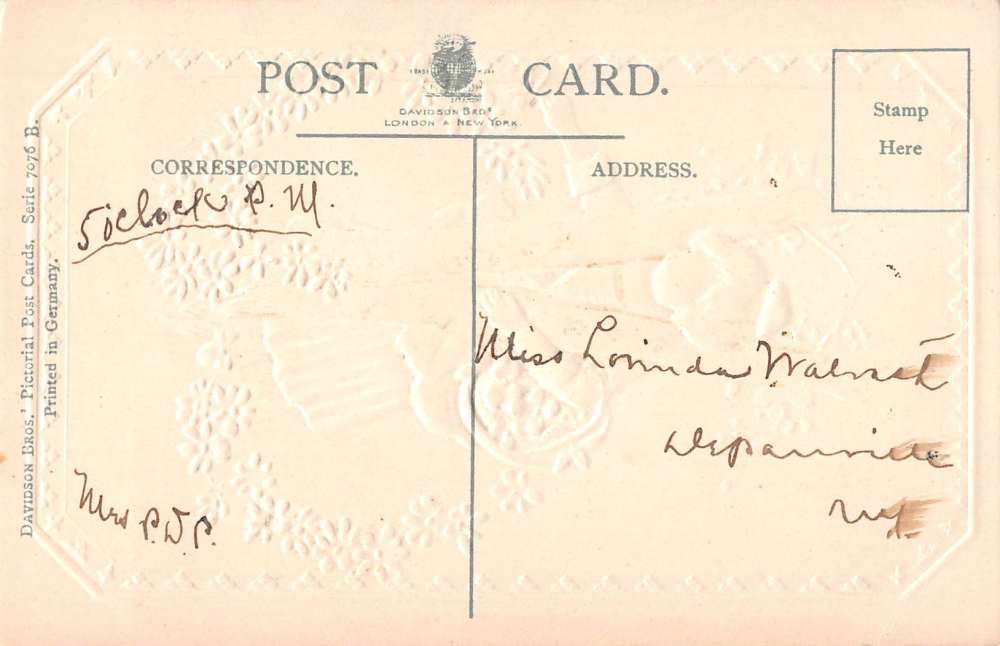 POST CARD.
DAVIDSON BROS.
LONDON & NEW YORK.
Stamp
Here
CORRESPONDENCE.
ADDRESS.
5 o'clock P.M.
Miss Lorinda Walrath
Depauville
N.Y.
Mrs P.D.P.
DAVIDSON BROS.' Pictorial Post Cards. Serie 7076 B.
Printed in Germany.